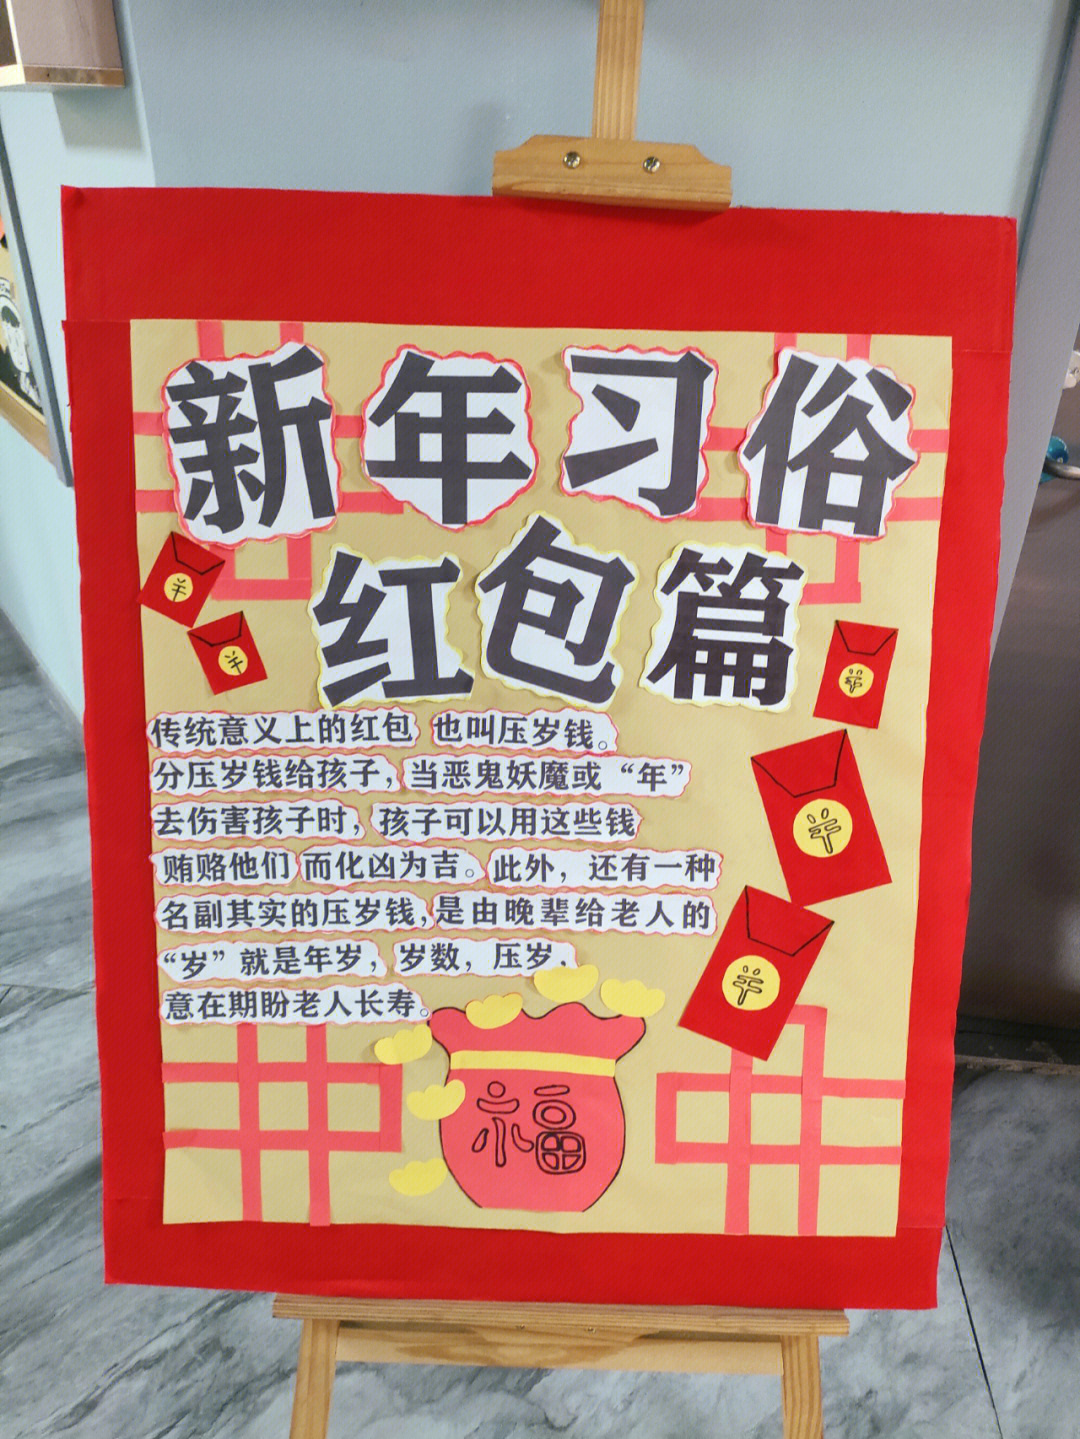 新年习俗
红包篇
传统意义上的红包 也叫压岁钱。
分压岁钱给孩子，当恶鬼妖魔或“年”
去伤害孩子时，孩子可以用这些钱
贿赂他们 而化凶为吉。此外，还有一种
名副其实的压岁钱，是由晚辈给老人的
“岁”就是年岁，岁数，压岁，
意在期盼老人长寿。
福